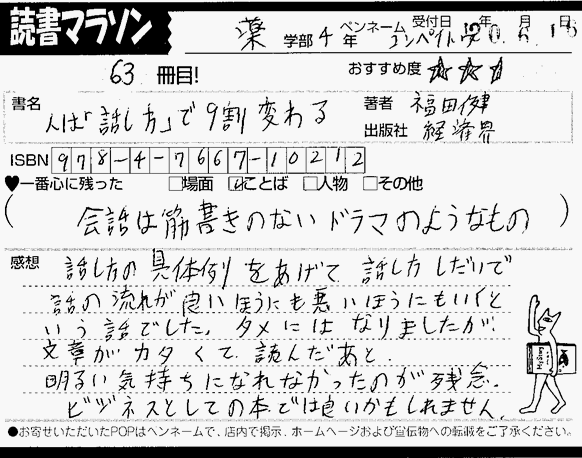 読書マラソン
薬 学部 4 年 ペンネーム コンペイトウ 受付日 年 月 日
63 冊目!
おすすめ度 ☆☆
書名 人は「話し方」で9割変わる
著者 福田健
出版社 経済界
ISBN 978-4-7667-10212
♥一番心に残った □場面 ☑ことば □人物 □その他
(会話は筋書きのないドラマのようなもの)
感想 話し方の具体例をあげて 話し方しだいで
話の流れが良いほうにも悪いほうにもいくと
いう話でした。タメにはなりましたが、
文章がカタくて、読んだあと、
明るい気持ちになれなかったのが残念。
ビジネスとしての本では良いかもしれません。
●お寄せいただいたPOPはペンネームで、店内で掲示、ホームページおよび宣伝物への転載をご了承ください。